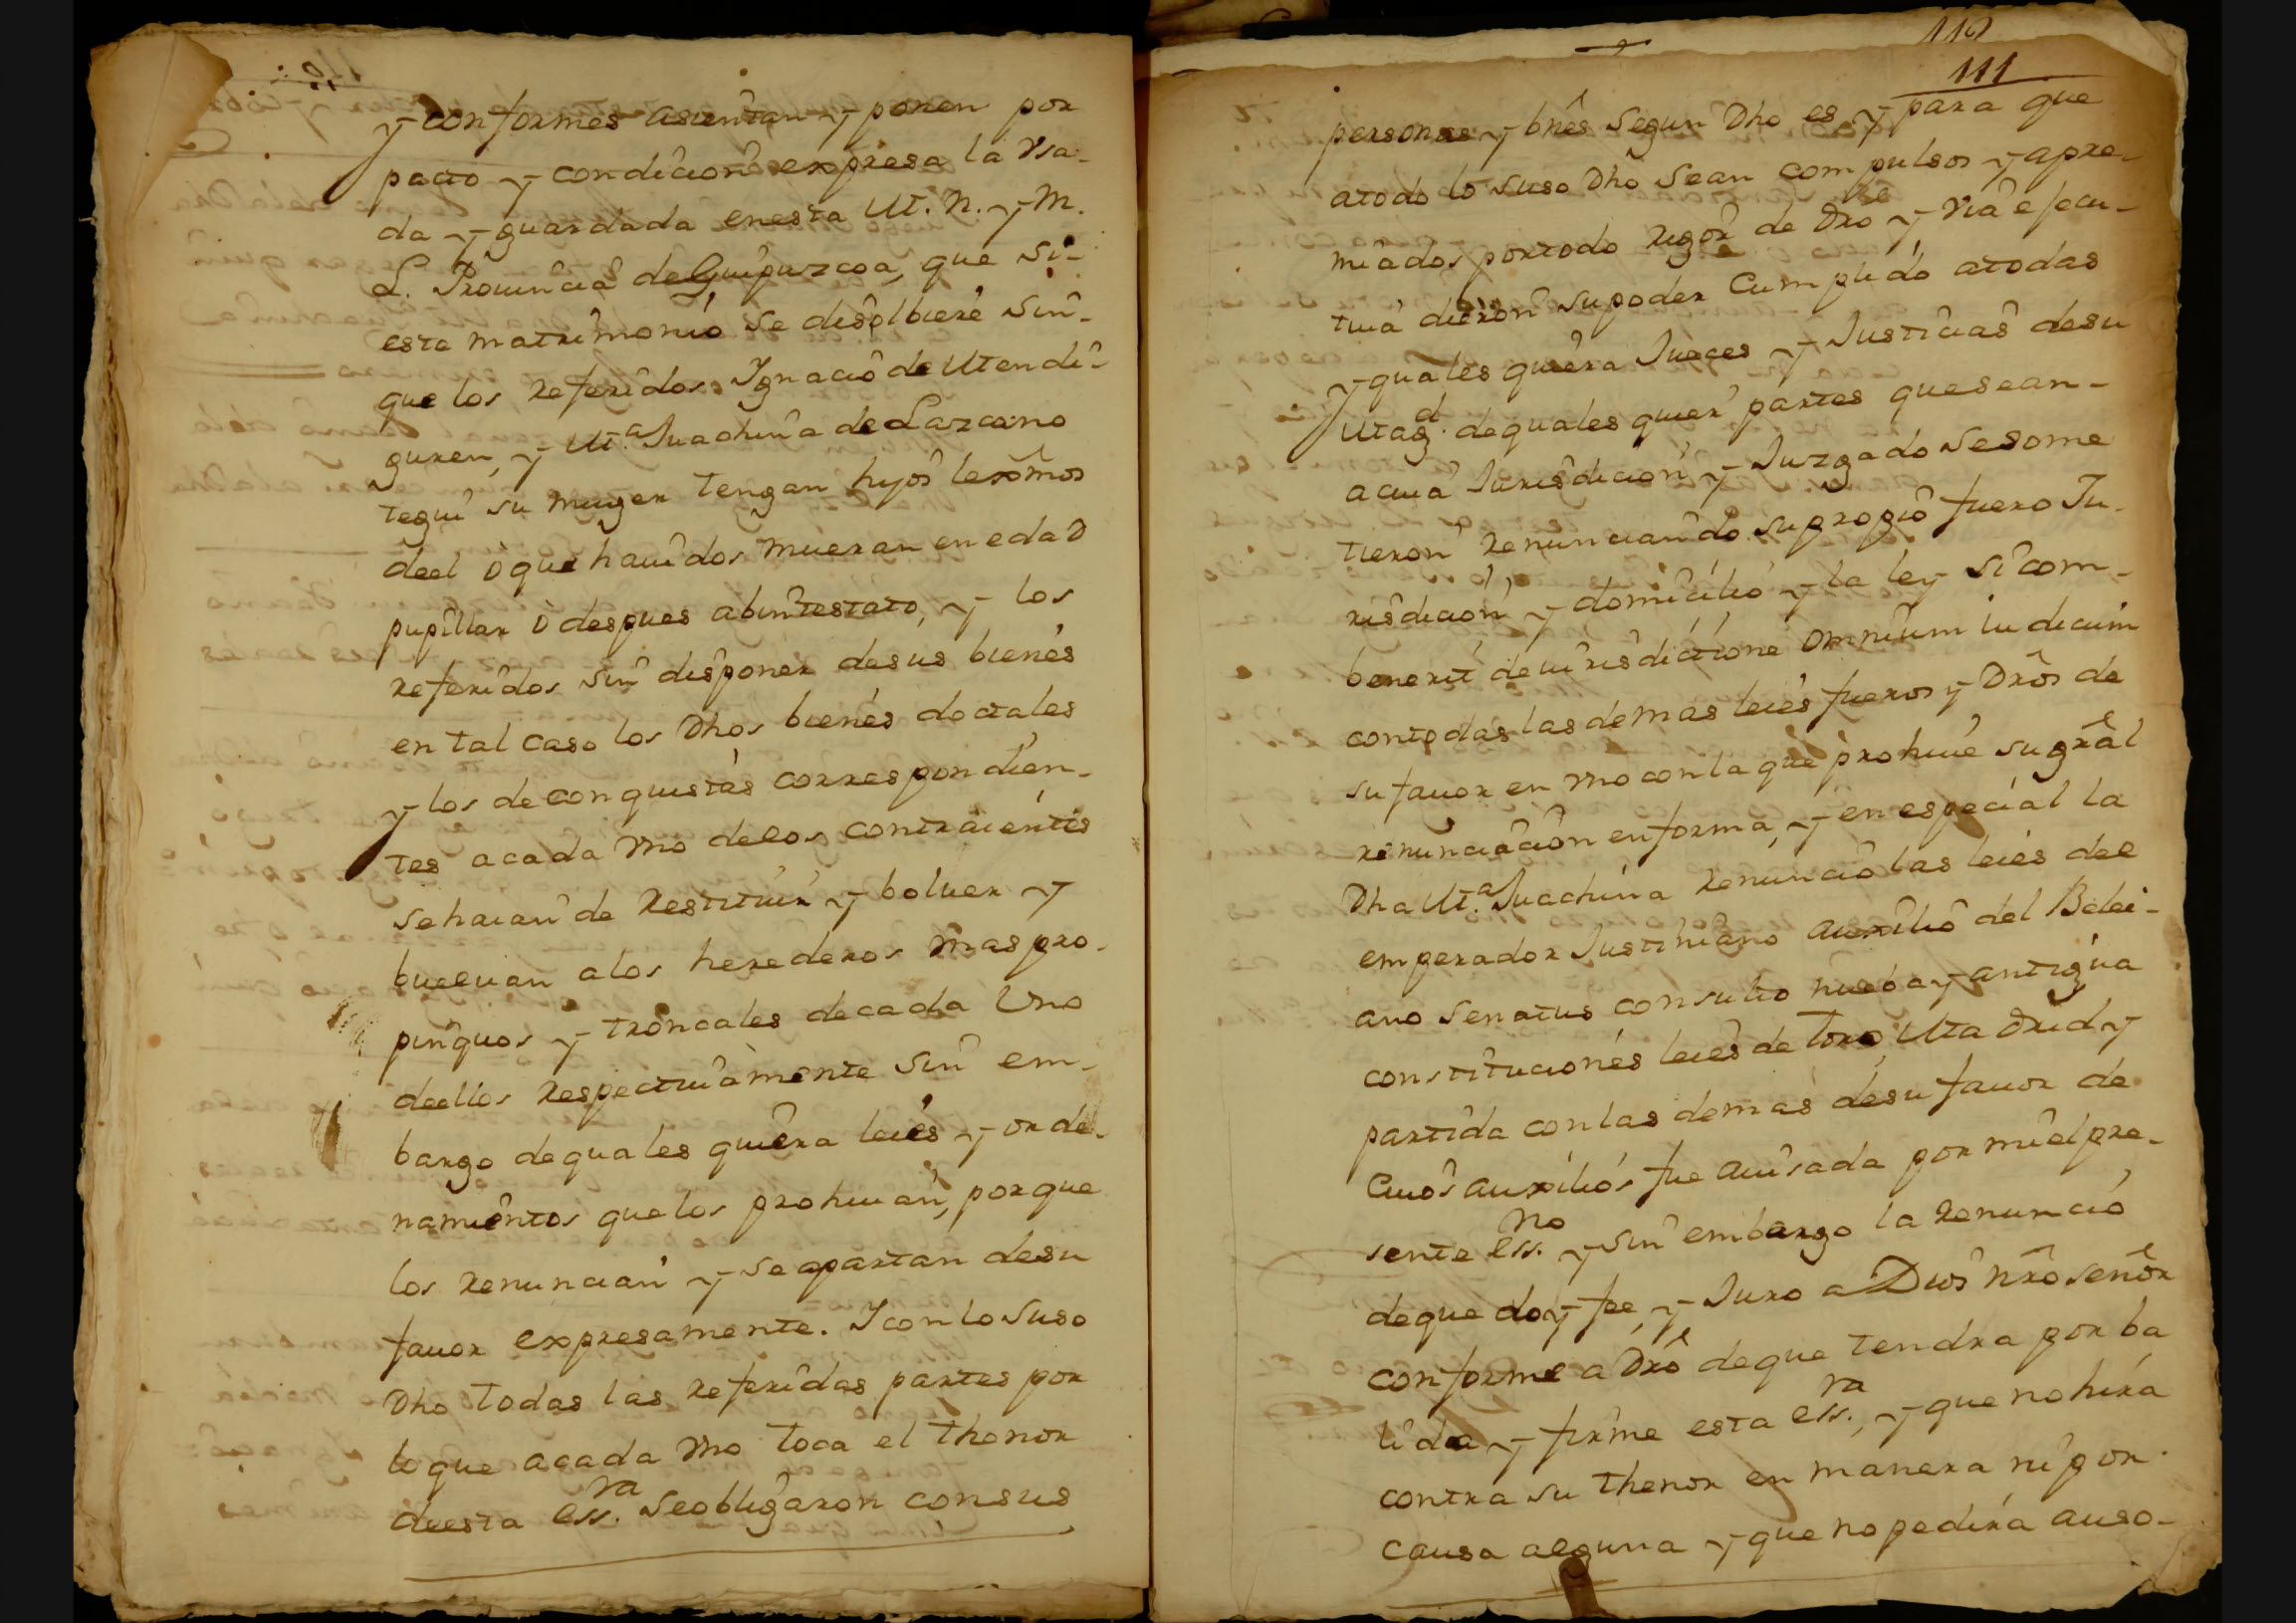 y conformes asientan y ponen por
pacto y condicion expresa la vsa-
da y guardada enesta M. N. y M.
L. Prouincia de Guipuzcoa, que si-
este matrimonio se disolbiere sin-
que los referidos Ignacio de Mendi-
guren, y M.a Juachina de Lazcano
tegui su muger tengan hijos lexmos
deel ò que hauidos mueran en edad
pupillar ò despues abintestato, y los
referidos sin disponer desus bienes
en tal caso los Dhos bienes dotales
y los de conquistas correspondien-
tes acada vno delos contraientes
sehaian de Restituir y boluer y
bueluan alos herederos mas pro-
pinquos y troncales decada Uno
deellos Respectiuamente sin em-
bargo dequales quiera leies y orde-
namientos quelos prohiuan, porque
los Renuncian y se apartan desu
fauor expresamente. I con lo suso
Dho todas las referidas partes por
lo que acada vno toca el thenor
deesta ess.ra se obligaron consus
112
111
personas y bnes segun Dho es y para que
atodo lo suso Dho sean compulsos y apre-
miados portodo rigor de Dro y via ejecu-
tiua dieron supoder Cumplido atodas
y quales quiera Jueces y Justicias desu
Mag.d dequales quier partes quesean-
acuia Jurisdicion y Juzgado se some
tieron renunciando supropio fuero Ju-
risdicion y domicilio y la ley si com-
benerit de iurisdictione omnium iudicum
contodas las demas leies fueros y Dros de
su fauor en vno con la que prohiue su gral
renunciacion enforma, y en especial la
Dha M.a Juachina Renuncio las leies del
emperador Justiniano auxilio del Belei-
ano senatus consulto nueba y antigua
constituciones leies de Toro, Madrid y
partida con las demas desu fauor de
Cuios auxilios fue auisada por mi el pre-
sente ess.no y sin embargo la Renuncio
de que doy fee, y Juro a Dios nro señor
conforme a Dro de que tendra por ba
lida y firme esta ess.ra, y que no hira
contra su thenor en manera ni por
causa alguna y que no pedira auso-